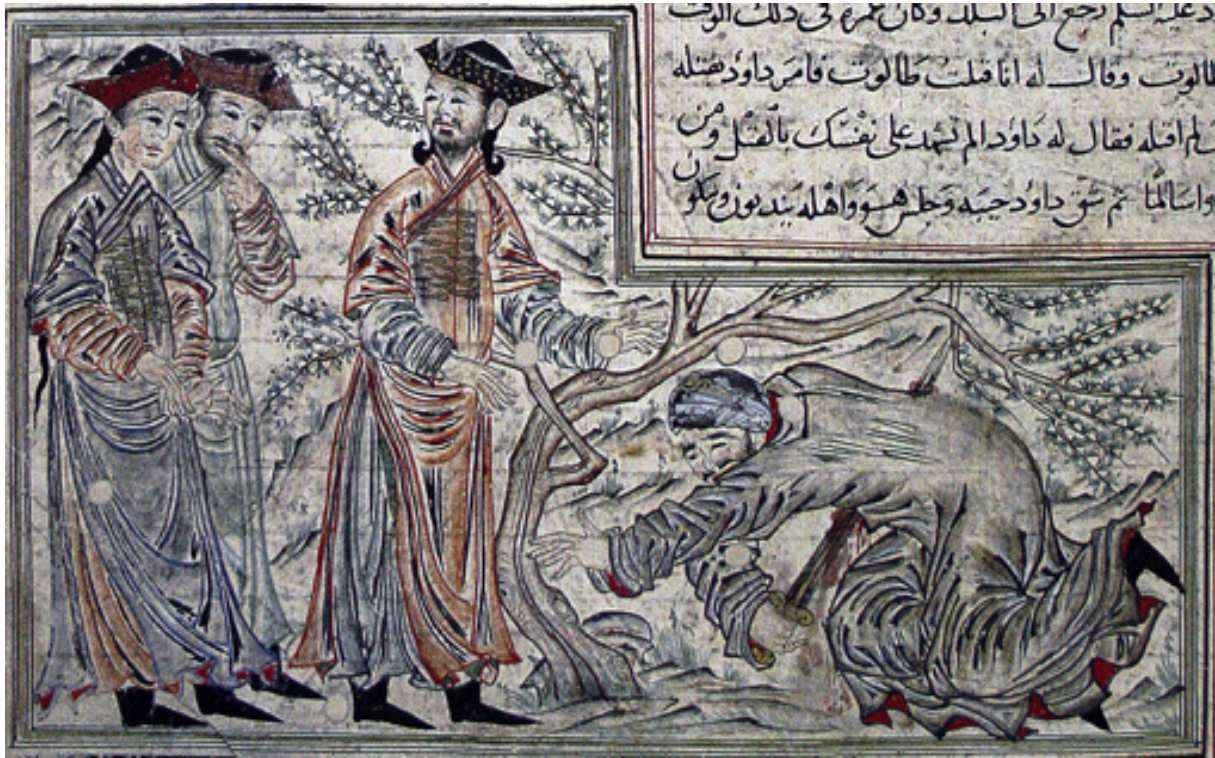 د عليه السلم رجع الى البلد وكان عمره فى ذلك الوقت
طالوت وقال له انا قتلت طالوت فامر داود بقتله
لم اقتله فقال له داود الم تشهد على نفسك بالقتل ومن
ثم شق داود جيبه وجلس هو واهله يندبون ويبكون